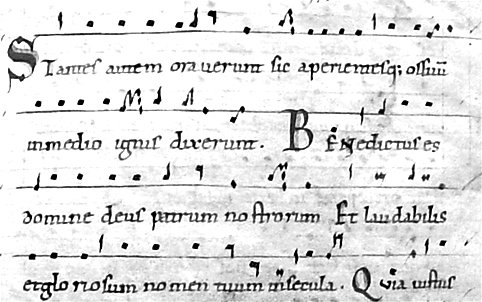 Stantes autem oraverunt sic aperientesq; ossuū
inmedio ignis dixerunt. Benedictus es
domine deus patrum nostrorum Et laudabilis
etglo riosum nomen tuum insecula. Quia iustus